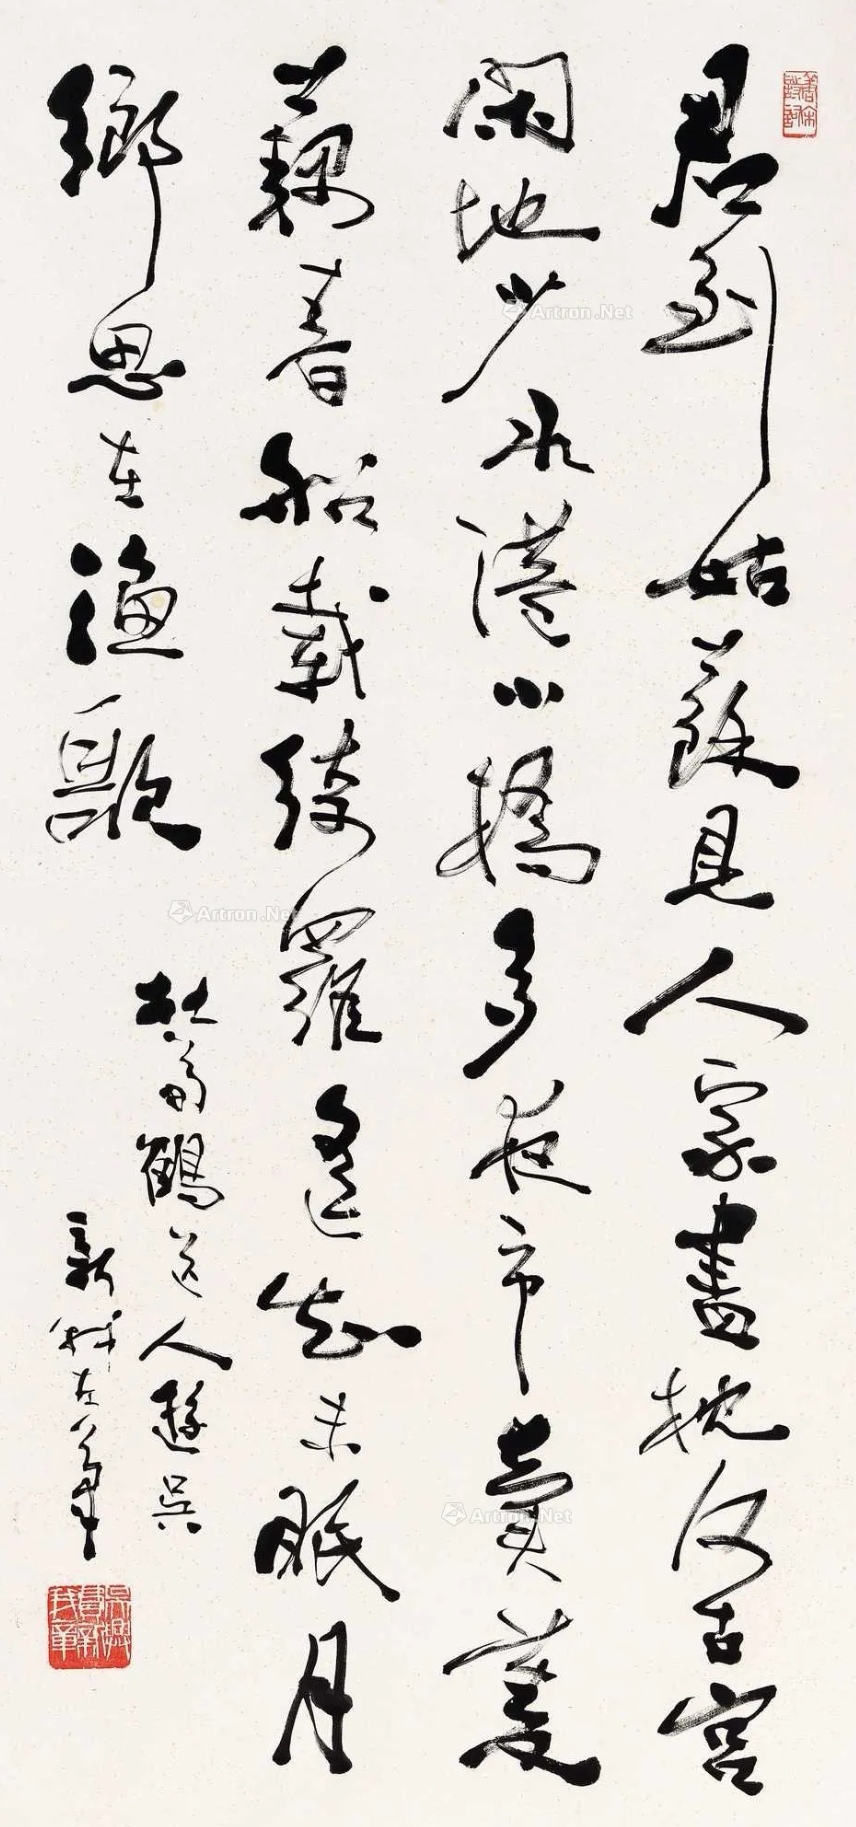 君到姑蘇見人家盡枕河古宮
閑地少水港小橋多夜市賣菱
藕春船載綺羅遙知未眠月
鄉思在漁歌
杜荀鶴送人遊吳
新我左筆
吳興費新我章
Artron.Net
Artron.Net
Artron.Net